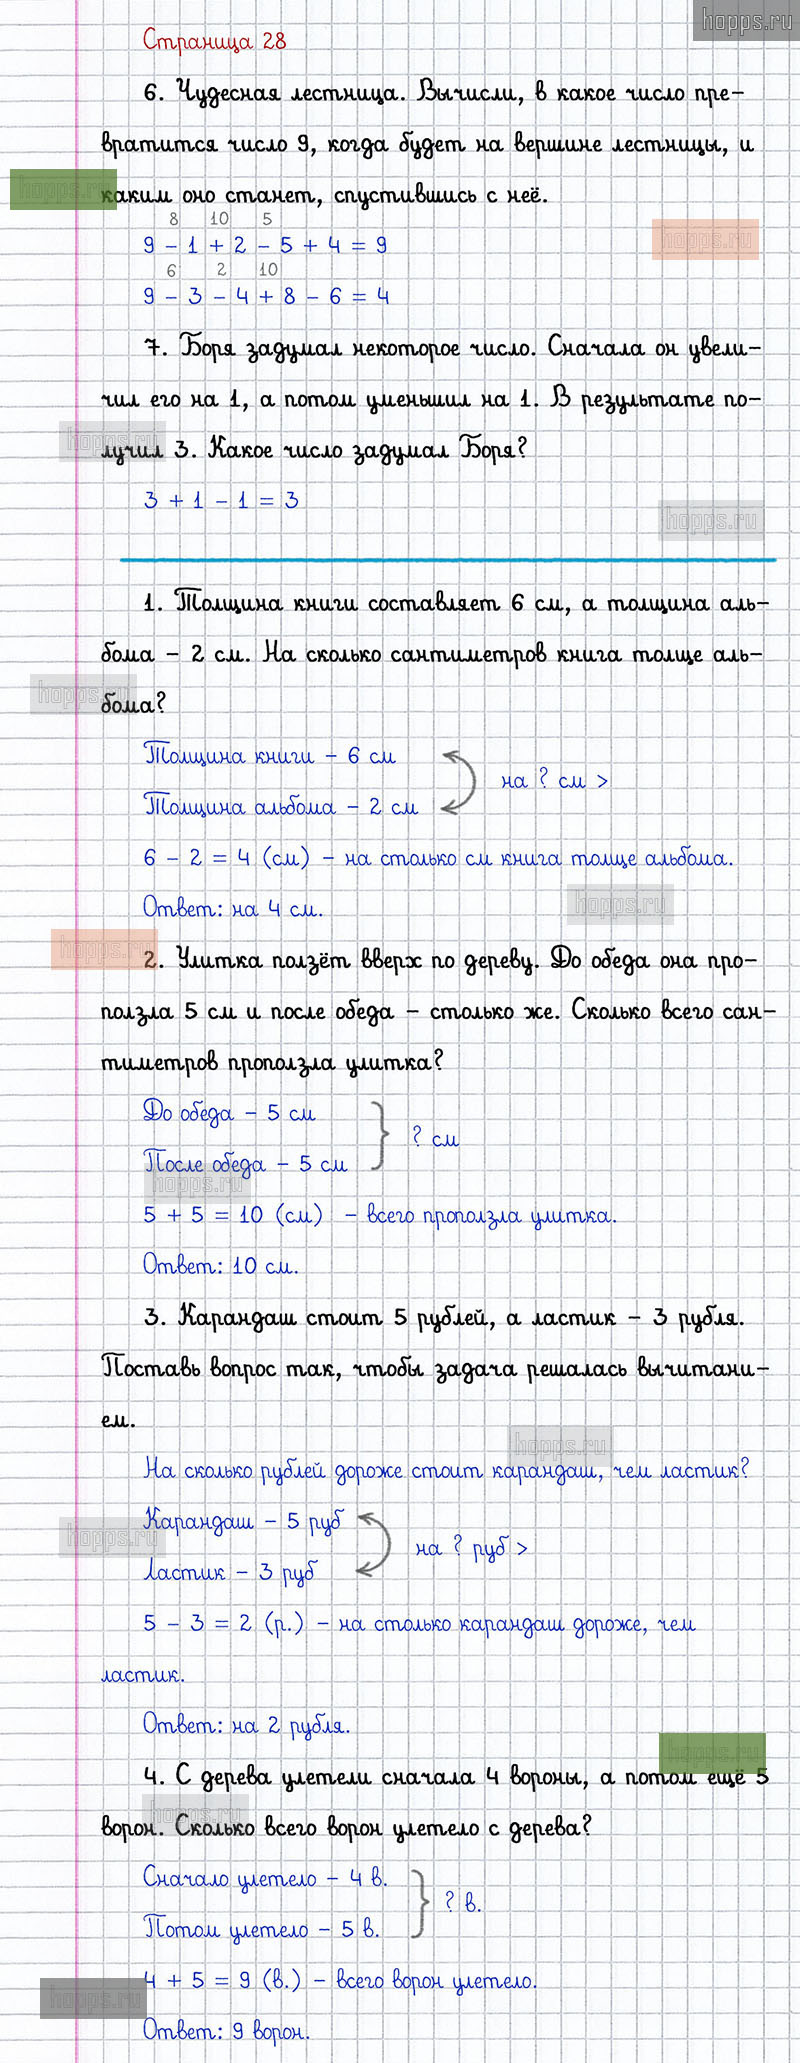 hopps.ru
Страница 28
6. Чудесная лестница. Вычисли, в какое число пре-
вратится число 9, когда будет на вершине лестницы, и
hopps.ru
каким оно станет, спустившись с неё.
8 10 5
9 - 1 + 2 - 5 + 4 = 9
hopps.ru
6 2 10
9 - 3 - 4 + 8 - 6 = 4
7. Боря задумал некоторое число. Сначала он увели-
чил его на 1, а потом уменьшил на 1. В результате по-
hopps.ru
лучил 3. Какое число задумал Боря?
3 + 1 - 1 = 3
hopps.ru
1. Толщина книги составляет 6 см, а толщина аль-
бома - 2 см. На сколько сантиметров книга толще аль-
hopps.ru
бома?
Толщина книги - 6 см
на ? см >
Толщина альбома - 2 см
6 - 2 = 4 (см) - на столько см книга толще альбома.
Ответ: на 4 см.
hopps.ru
hopps.ru
2. Улитка ползёт вверх по дереву. До обеда она про-
ползла 5 см и после обеда - столько же. Сколько всего сан-
тиметров проползла улитка?
До обеда - 5 см
? см
После обеда - 5 см
hopps.ru
5 + 5 = 10 (см) - всего проползла улитка.
Ответ: 10 см.
3. Карандаш стоит 5 рублей, а ластик - 3 рубля.
Поставь вопрос так, чтобы задача решалась вычитани-
ем.
hopps.ru
На сколько рублей дороже стоит карандаш, чем ластик?
Карандаш - 5 руб
hopps.ru
на ? руб >
Ластик - 3 руб
5 - 3 = 2 (р.) - на столько карандаш дороже, чем
ластик.
Ответ: на 2 рубля.
hopps.ru
4. С дерева улетели сначала 4 вороны, а потом ещё 5
hopps.ru
ворон. Сколько всего ворон улетело с дерева?
Сначало улетело - 4 в.
? в.
Потом улетело - 5 в.
4 + 5 = 9 (в.) - всего ворон улетело.
hopps.ru
Ответ: 9 ворон.